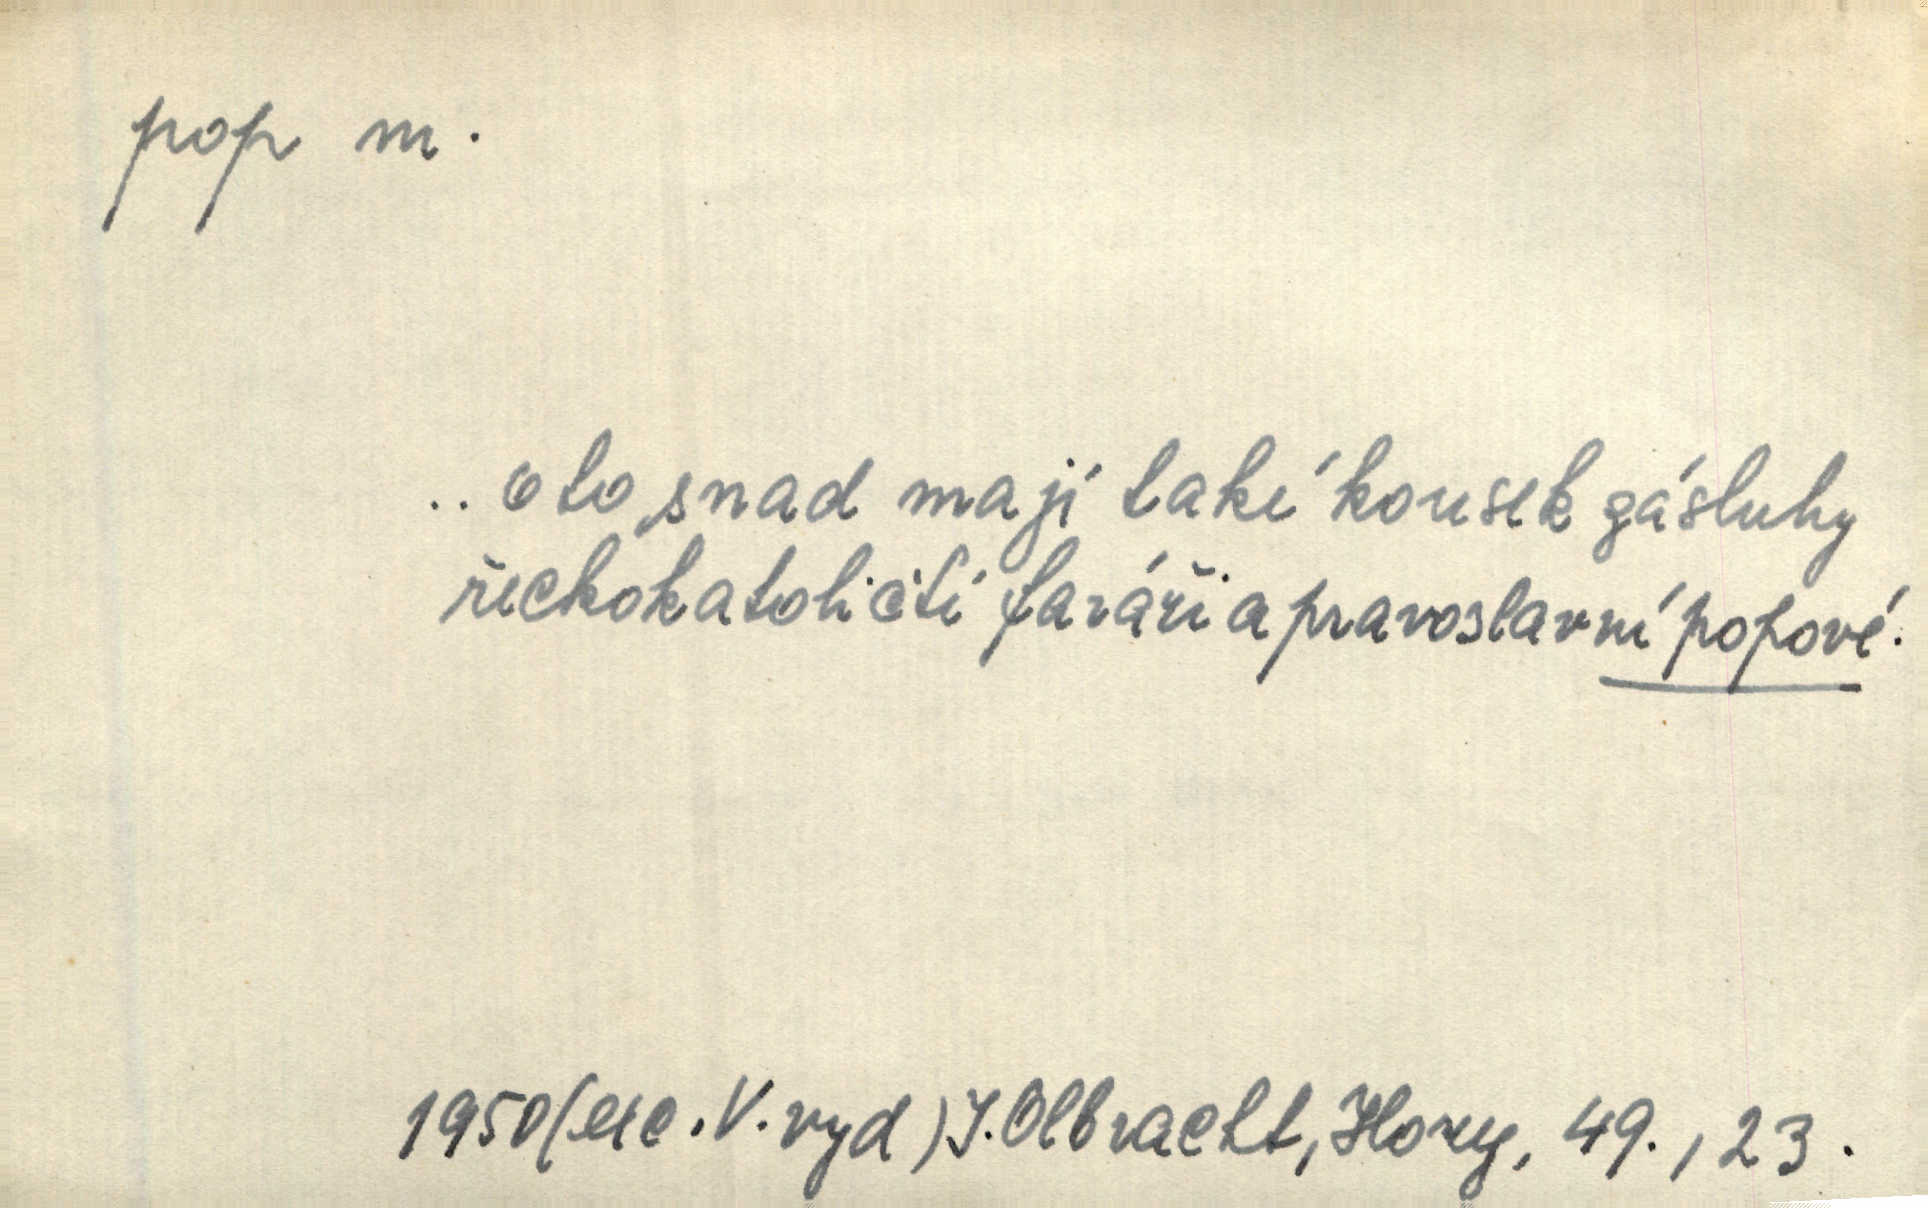 pop m.
.. o to snad mají také kousek zásluhy
řeckokatoličtí faráři a pravoslavní popové.
1950 (exc. V. vyd) I. Olbracht, Hory, 49., 23.